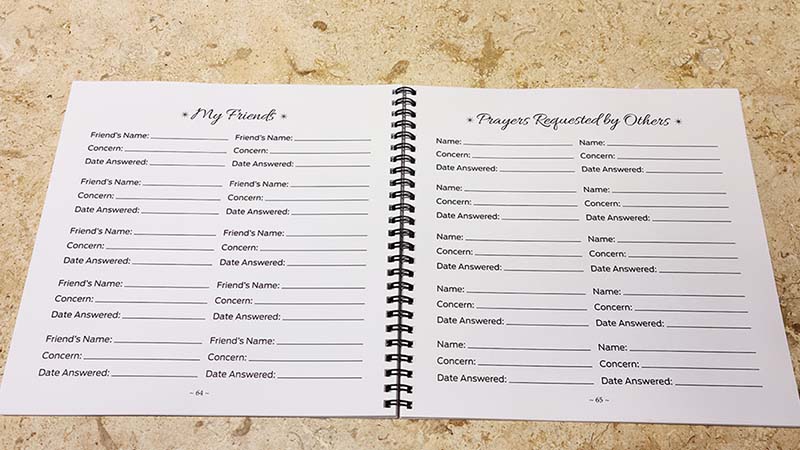 ✶ My Friends ✶
Friend's Name: Friend's Name:
Concern: Concern:
Date Answered: Date Answered:
Friend's Name: Friend's Name:
Concern: Concern:
Date Answered: Date Answered:
Friend's Name: Friend's Name:
Concern: Concern:
Date Answered: Date Answered:
Friend's Name: Friend's Name:
Concern: Concern:
Date Answered: Date Answered:
Friend's Name: Friend's Name:
Concern: Concern:
Date Answered: Date Answered:
~ 64 ~
✶ Prayers Requested by Others ✶
Name: Name:
Concern: Concern:
Date Answered: Date Answered:
Name: Name:
Concern: Concern:
Date Answered: Date Answered:
Name: Name:
Concern: Concern:
Date Answered: Date Answered:
Name: Name:
Concern: Concern:
Date Answered: Date Answered:
Name: Name:
Concern: Concern:
Date Answered: Date Answered:
~ 65 ~